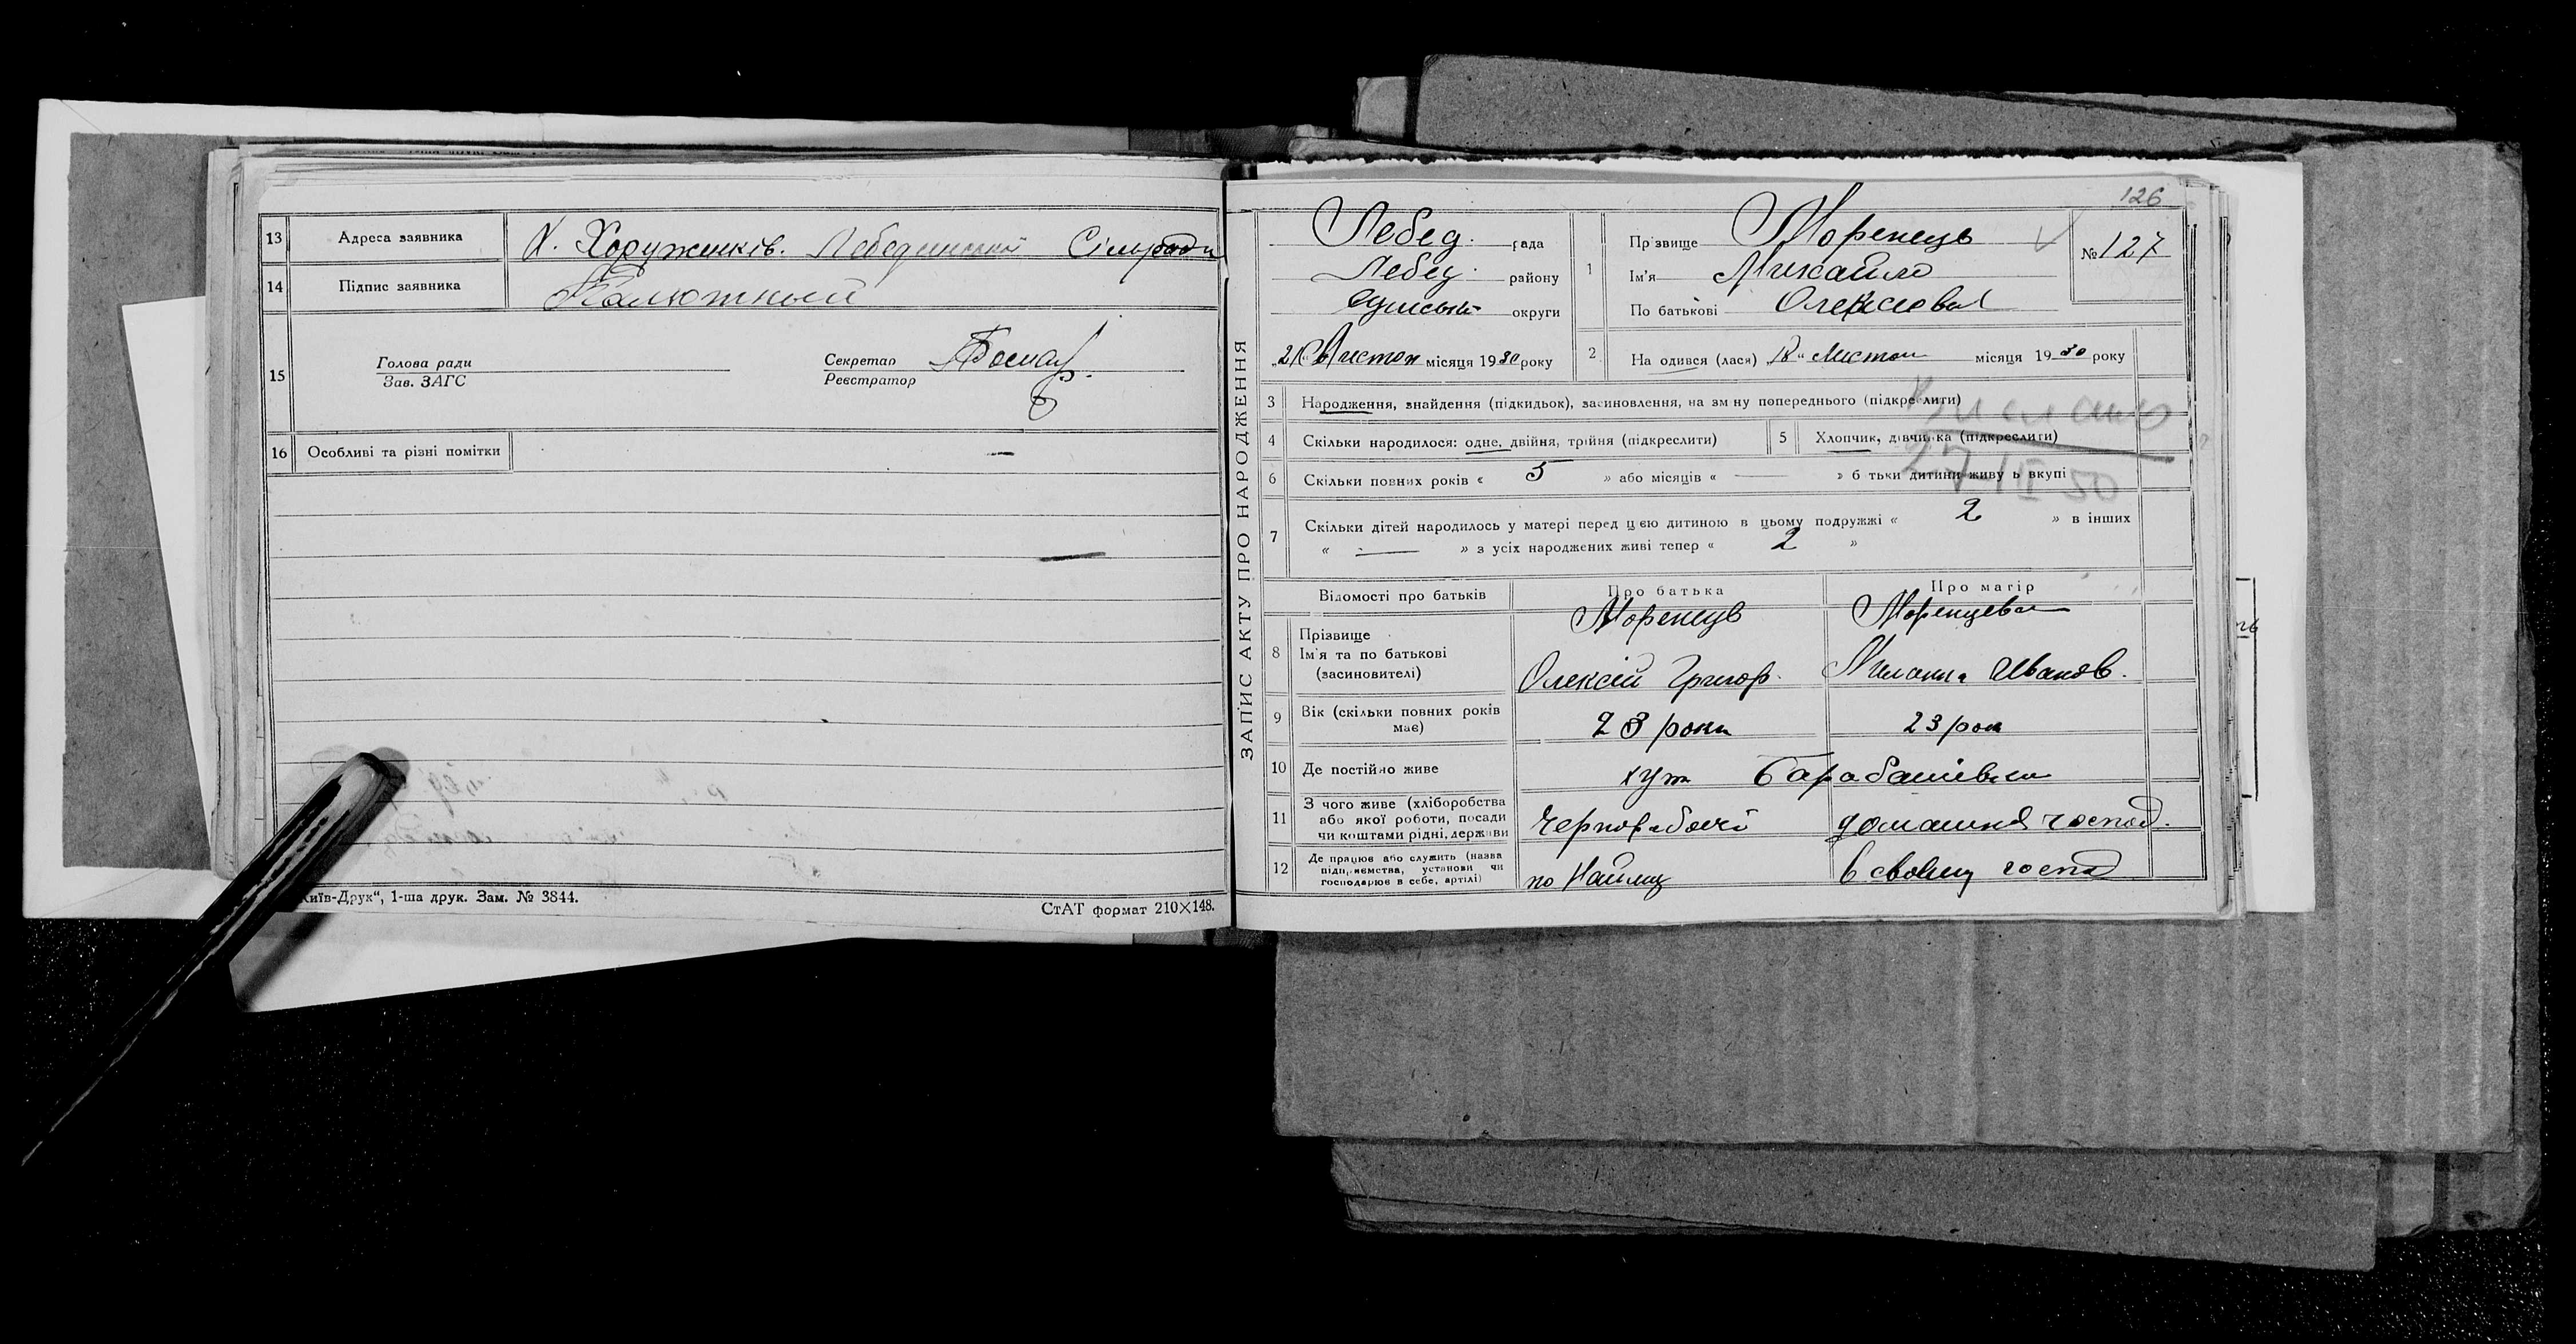 13 Адреса заявника Х. Хоружиків. Лебединської Сільради
14 Підпис заявника Калюжный
15 Голова ради
Зав. ЗАГС
Секретар
Реєстратор
16 Особливі та різні помітки —
Київ-Друк“, 1-ша друк. Зам. № 3844.
СтАТ формат 210×148.
126
ЗАПИС АКТУ ПРО НАРОДЖЕННЯ
Лебед. рада
Лебед. району
Сумськ округи
місяця 1930 року
1 Прізвище Моренець
Ім'я Михайло
По батькові Олексієвич
№ 127
2 На одився (лася) „ “ Листоп місяця 1930 року
3 Народження, знайдення (підкидьок), засиновлення, на зміну попереднього (підкреслити)
4 Скільки народилося: одне, двійня, трійня (підкреслити)
5 Хлопчик, дівчинка (підкреслити)
6 Скільки повних років « 5 » або місяців « — » б тьки дитини живу ь вкупі
7 Скільки дітей народилось у матері перед цією дитиною в цьому подружжі « 2 » в інших
« — » з усіх народжених живі тепер « 2 »
Відомості про батьків Про батька Про матір
8 Прізвище
Ім'я та по батькові
(засиновителі)
Моренець
Олексій Григор.
Моренцева
Миланка Иванов.
9 Вік (скільки повних років
має)
23 роки
23 рок
10 Де постійно живе хут Барабашівка
11 З чого живе (хліборобства
або якої роботи, посади
чи коштами рідні, держави
Чорнорабочій
домашня господ.
12 Де працює або служить (назва
підприємства, установи чи
господарює в себе, артілі)
по Найму
в своєму господ